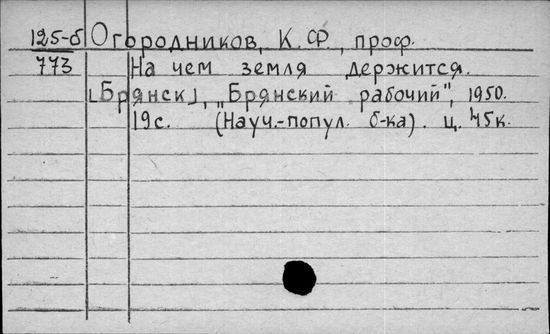 125-б Огородников, К. Ф., проф.
773 На чем земля держится.
[Брянск], „Брянский рабочий", 1950.
19 с. (Науч.-попул. б-ка). ц. 45 к.